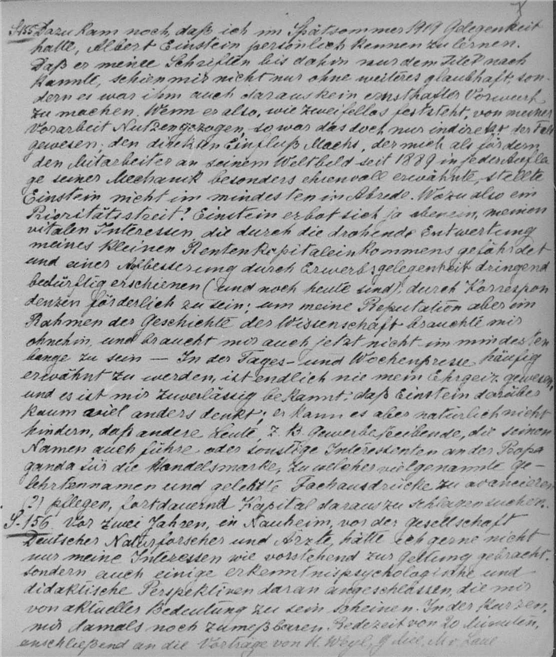 S. 155 Dazu kam noch, daß ich im Spätsommer 1919 Gelegenheit
hatte, Albert Einstein persönlich kennen zu lernen.
Daß er meine Schriften bis dahin nur dem Titel nach
kannte, schien mir nicht nur ohne weiteres glaubhaft son-
dern es war ihm auch daraus kein ernsthafter Vorwurf
zu machen. Wenn er also, wie zweifellos feststeht, von meiner
Vorarbeit Nutzen gezogen, so war das doch nur indirekt der Fall
gewesen, den direkten Einfluß Machs, der mich als fördern
den Mitarbeiter an seinem Weltbild seit 1889 in jeder Aufla
ge seiner Mechanik besonders ehrenvoll erwähnte, stellte
Einstein nicht im mindesten in Abrede. Wozu also ein
Prioritätsstreit! Einstein erbot sich ja obenein, meinen
vitalen Interessen, die durch die drohende Entwertung
meines kleinen Rentenkapitaleinkommens gefährdet
und einer Aufbesserung durch Erwerbsgelegenheit dringend
bedürftig erschienen (und noch heute sind), durch Korrespon
denzen förderlich zu sein; um meine Reputation aber im
Rahmen der Geschichte der Wissenschaft brauchte mir
ohnehin, und braucht mir auch jetzt nicht im mindesten
bange zu sein — In der Tages- und Wochenpresse häufig
erwähnt zu werden, ist endlich nie mein Ehrgeiz gewesen,
und es ist mir zuverlässig bekannt, daß Einstein darüber
kaum viel anders denkt, er kann es aber natürlich nicht
hindern, daß andere Leute, z. B. Gewerbetreibende, die seinen
Namen auch führen oder sonstige Interessenten an der Propa
ganda für die Handelsmarke, zu welcher vielgenannte Ge-
lehrtennamen und gelehrte Fachausdrücke zu avancieren
(?) pflegen, fortdauernd Kapital daraus zu schlagen suchen.
S. 156. Vor zwei Jahren, in Nauheim, vor der Gesellschaft
Deutscher Naturforscher und Ärzte, hätte ich gerne nicht
nur meine Interessen wie vorstehend zur Geltung gebracht,
sondern auch einige erkenntnispsychologische und
didaktische Perspektiven daran angeschlossen, die mir
von aktueller Bedeutung zu sein scheinen. In der kurzen,
mir damals noch zumeßbaren Redezeit von 20 Minuten,
anschließend an die Vorträge von H. Weyl, G. Mie, M. v. Laue